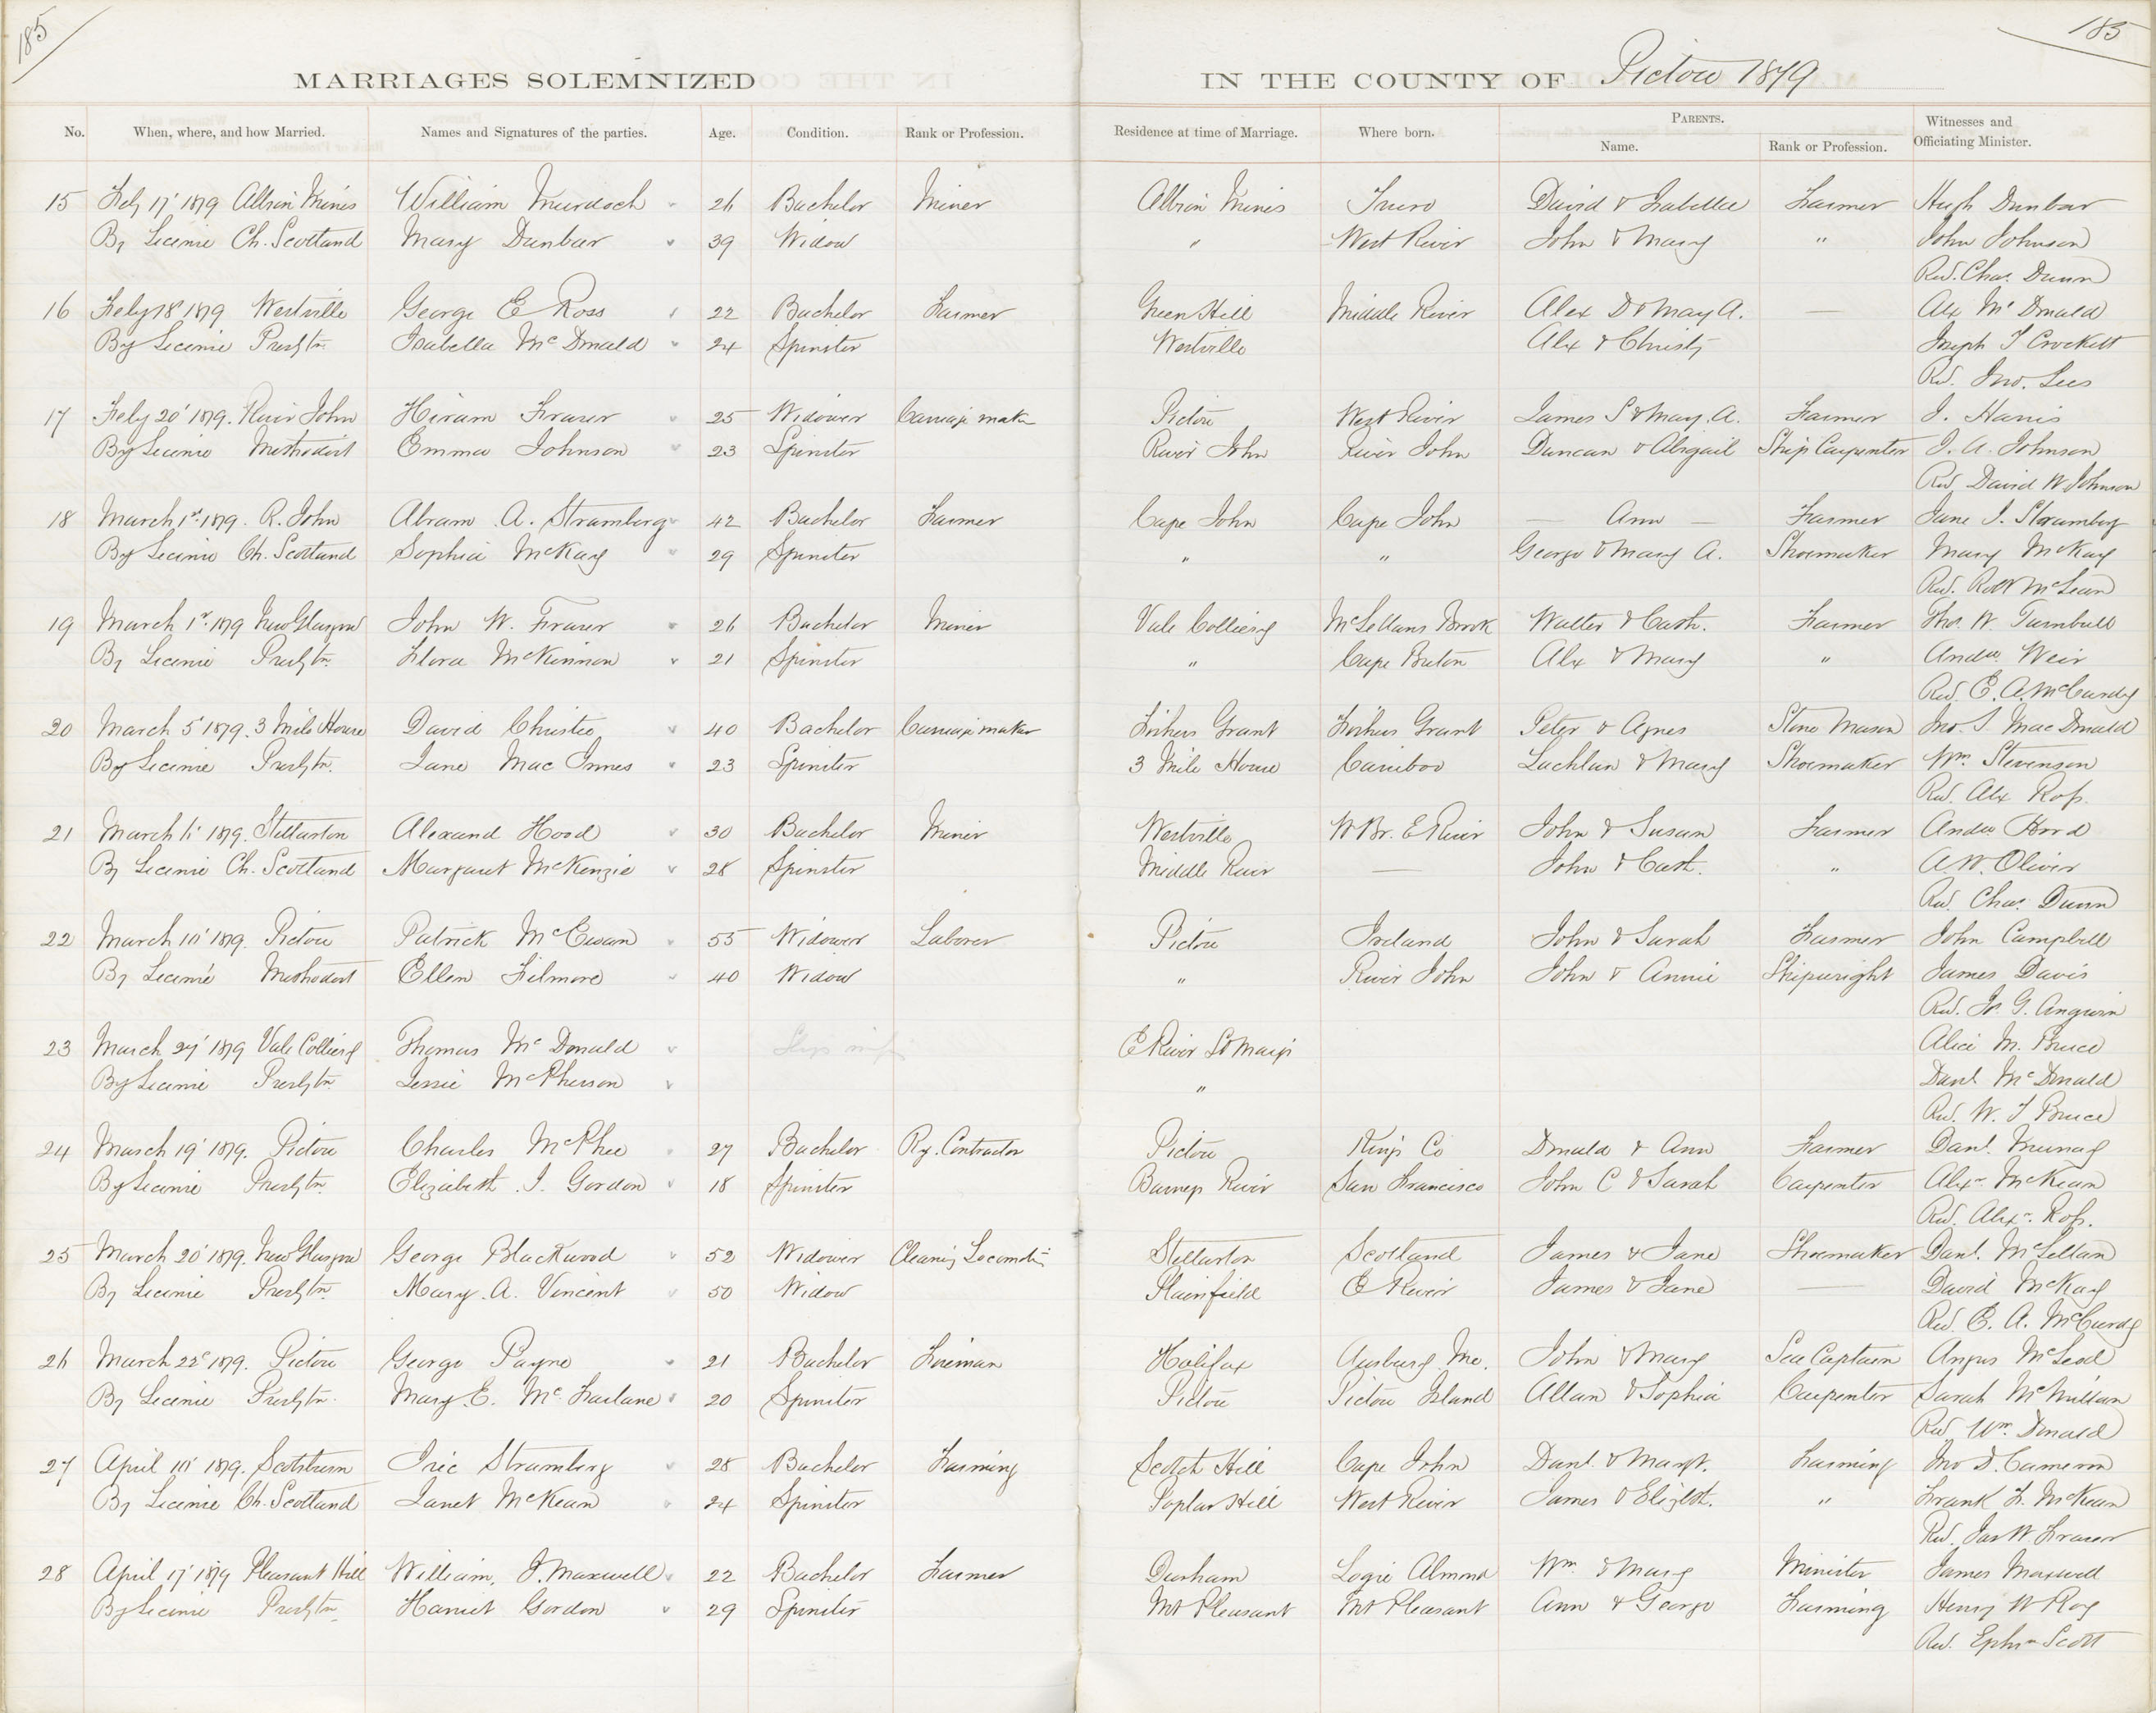 185
185
MARRIAGES SOLEMNIZED IN THE COUNTY OF Pictou 1879
No. When, where, and how Married. Names and Signatures of the parties. Age. Condition. Rank or Profession. Residence at time of Marriage. Where born. PARENTS. Name. Rank or Profession. Witnesses and Officiating Minister.
15 Feby 17' 1879 Albion Mines William Murdoch 26 Bachelor Miner Albion Mines Truro David & Isabella Farmer Hugh Dunbar
By License Ch. Scotland Mary Dunbar 39 Widow " West River John & Mary " John Johnson
Rev. Chas. Dunn
16 Feby 18' 1879 Westville George E Ross 22 Bachelor Farmer Green Hill Middle River Alex D & May A. — Alx Mc Donald
By License Presbtn. Isabella Mc Donald 24 Spinster Westville Alx & Christy Joseph F Crockett
Rev. Jno. Lees
17 Feby 20' 1879. River John Hiram Fraser 25 Widower Carriage maker Pictou West River James S & Mary. A. Farmer J. Harris
By License Methodist Emma Johnson 23 Spinster River John River John Duncan & Abigail Ship Carpenter J. A. Johnson
Rev. David W Johnson
18 March 1st 1879. R. John Abram A. Stramberg 42 Bachelor Farmer Cape John Cape John — Ann — Farmer Jane J. Stramberg
By License Ch. Scotland Sophia McKay 29 Spinster " " George & Mary A. Shoemaker Mary McKay
Rev. Robt McLean
19 March 1st 1879 New Glasgow John W. Fraser 26 Bachelor Miner Vale Colliery McLellans Brook Walter & Cath. Farmer Thos. W. Turnbull
By License Presbtn. Flora McKinnon 21 Spinster " Cape Breton Alx & Mary " Andw. Weir
Rev. E. A. McCurdy
20 March 5' 1879. 3 Mile House David Christie 40 Bachelor Carriage maker Fishers Grant Fishers Grant Peter & Agnes Stone Mason Jno. S. Mac Donald
By License Presbtn. Jane Mac Innes 23 Spinster 3 Mile House Cariboo Lachlan & Mary Shoemaker Wm. Stevenson
Rev. Alx Ross.
21 March 6' 1879. Stellarton Alexand Hood 30 Bachelor Miner Westville W Br. E River John & Susan Farmer Andw Hood
By License Ch. Scotland Margaret McKenzie 28 Spinster Middle River — John & Cath. " A W. Oliver
Rev. Chas. Dunn
22 March 10' 1879. Pictou Patrick McEwan 55 Widower Laborer Pictou Ireland John & Sarah Farmer John Campbell
By License Methodist Ellen Filmore 40 Widow " River John John & Annie Shipwright James Davis
Rev. Jos. G. Angwin
23 March 27' 1879 Vale Colliery Thomas Mc Donald E River St Marys Alice M. Bruce
By License Presbtn. Jessie McPherson " Danl. McDonald
Rev. W. T Bruce
24 March 19' 1879. Pictou Charles McPhee 27 Bachelor Ry. Contractor Pictou Kings Co Donald & Ann Farmer Danl. Murray
By License Presbtn. Elizabeth J. Gordon 18 Spinster Barneys River San Francisco John C & Sarah Carpenter Alxr. McKean
Rev. Alexr. Ross.
25 March 20' 1879. New Glasgow George Blackwood 52 Widower Cleaning Locomotive Stellarton Scotland James & Jane Shoemaker Danl. McLellan
By License Presbtn. Mary. A. Vincent 50 Widow Plainfield E River James & Jane — David McKay
Rev. E. A. McCurdy
26 March 22' 1879. Pictou George Payne 21 Bachelor Fireman Halifax Me. John & Mary Sea Captain Angus McLeod
By License Presbtn. Mary. E. Mc. Farlane 20 Spinster Pictou Pictou Island Allan & Sophia Carpenter Sarah McMillan
Rev Wm. Donald
27 April 10' 1879. Scotsburn Iric Stramberg 28 Bachelor Farming Scotch Hill Cape John Danl. & Margt. Farming Jno D. Cameron
By License Ch. Scotland Janet McKean 24 Spinster Poplar Hill West River James & Elizbth. " Frank F. McKean
Rev. Jas W Fraser
28 April 17' 1879 Pleasant Hill William. J. Maxwell 22 Bachelor Farmer Durham Logie Almond Wm. & Mary Minister James Maxwell
By License Presbtn. Harriet Gordon 29 Spinster Mt Pleasant Mt Pleasant Ann & George Farming Henry W Roy
Rev. Ephm Scott